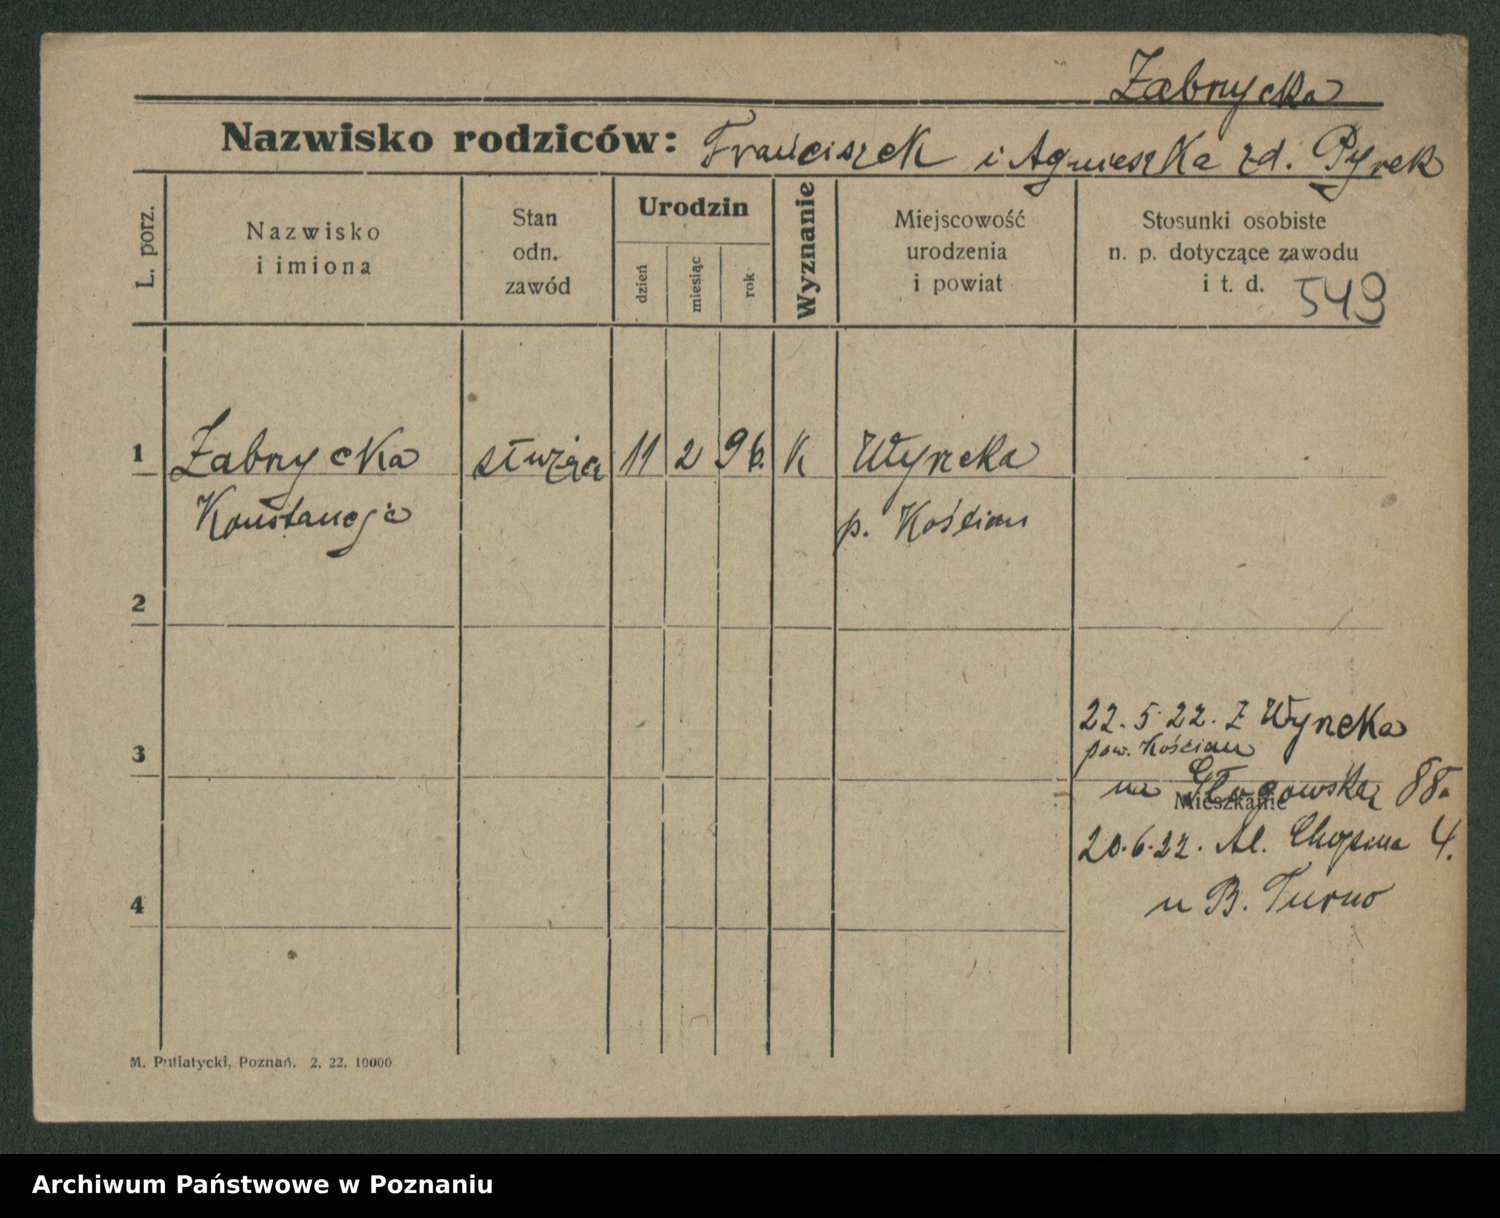 Zabrycka
Nazwisko rodziców: Franciszek i Agnieszka zd. Pyrek
L. porz.
Nazwisko
i imiona
Stan
odn.
zawód
Urodzin
dzień
miesiąc
rok
Wyznanie
Miejscowość
urodzenia
i powiat
Stosunki osobiste
n. p. dotyczące zawodu
i t. d. 549
1 Zabrycka służąca 11 2 96. K Wyrcka
Konstancja p. Kościan
2
22. 5. 22. Z Wyrcka
3 pow. Kościan
na Głogowska 88.
Mieszkanie
20. 6. 22. Al. Chopina 4.
4 u B. Turno
M. Putiatycki, Poznań. 2. 22. 10000
Archiwum Państwowe w Poznaniu